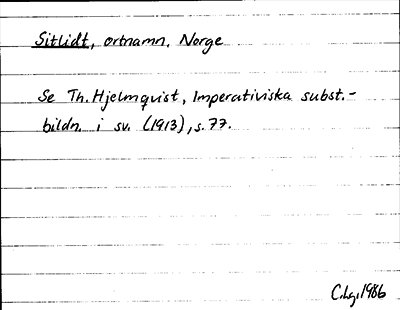 Sitlidt, ortnamn, Norge
Se Th. Hjelmqvist, Imperativiska subst.-
bildn. i sv. (1913), s. 77.
C.Lg. 1986